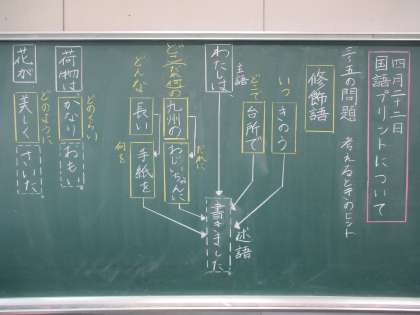 四月二十二日
国語プリントについて
三・五の問題 考えるときのヒント
修飾語
いつ
きのう
どこで
台所で
主語
わたしは、
述語
書きました。
だれに
おじいちゃんに
九州の
どんな
長い
手紙を
何を
どのくらい
荷物は
かなり
おもい。
どのように
花が
美しく
さいた。